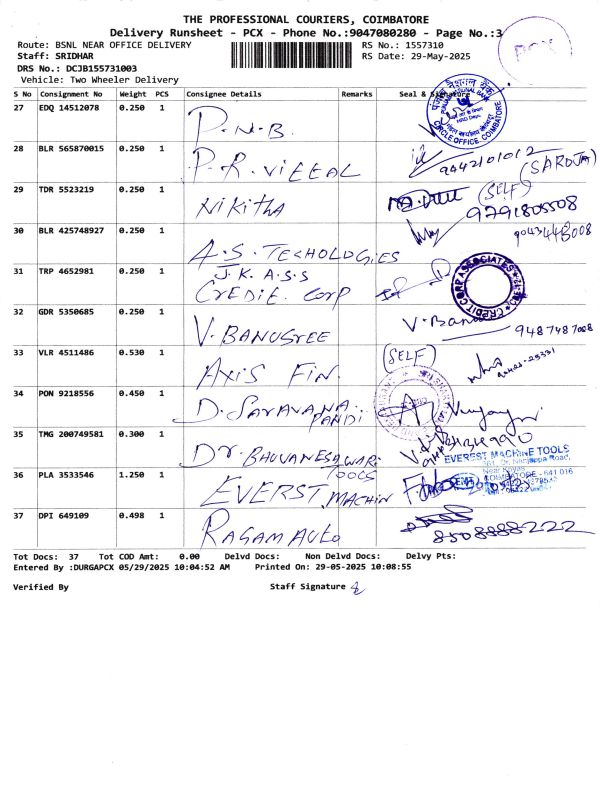 THE PROFESSIONAL COURIERS, COIMBATORE
Delivery Runsheet - PCX - Phone No.:9047080280 - Page No.:3
PCX
Route: BSNL NEAR OFFICE DELIVERY
RS No.: 1557310
Staff: SRIDHAR
RS Date: 29-May-2025
DRS No.: DCJB155731003
Vehicle: Two Wheeler Delivery
S No Consignment No Weight PCS Consignee Details Remarks Seal & Signature
27 EDQ 14512078 0.250 1 P.N.B.
CIRCLE OFFICE, COIMBATORE
28 BLR 565870015 0.250 1 P.R. VITTAL 9442101012 (SAROJA)
29 TDR 5523219 0.250 1 NIKITHA (SELF) 9791805508
30 BLR 425748927 0.250 1 A.S. TECHOLOGIES
31 TRP 4652981 0.250 1 J.K. ASS
CREDIT. CORP
CREDIT CORP ASSOCIATES
32 GDR 5350685 0.250 1 V. BANUSREE V. Banu 9487487008
(SELF)
33 VLR 4511486 0.530 1 AXIS FIN.
34 PON 9218556 0.450 1 D. SARAVANA PANDI
35 TMG 200749581 0.300 1 Dr. BHUVANESAWARI
36 PLA 3533546 1.250 1 EVERST MACHIN TOOLS
EVEREST MACHINE TOOLS
COIMBATORE - 641 016
37 DPI 649109 0.498 1 RAGAM AUTO 8508888222
Tot Docs: 37 Tot COD Amt: 0.00 Delvd Docs: Non Delvd Docs: Delvy Pts:
Entered By :DURGAPCX 05/29/2025 10:04:52 AM Printed On: 29-05-2025 10:08:55
Verified By Staff Signature